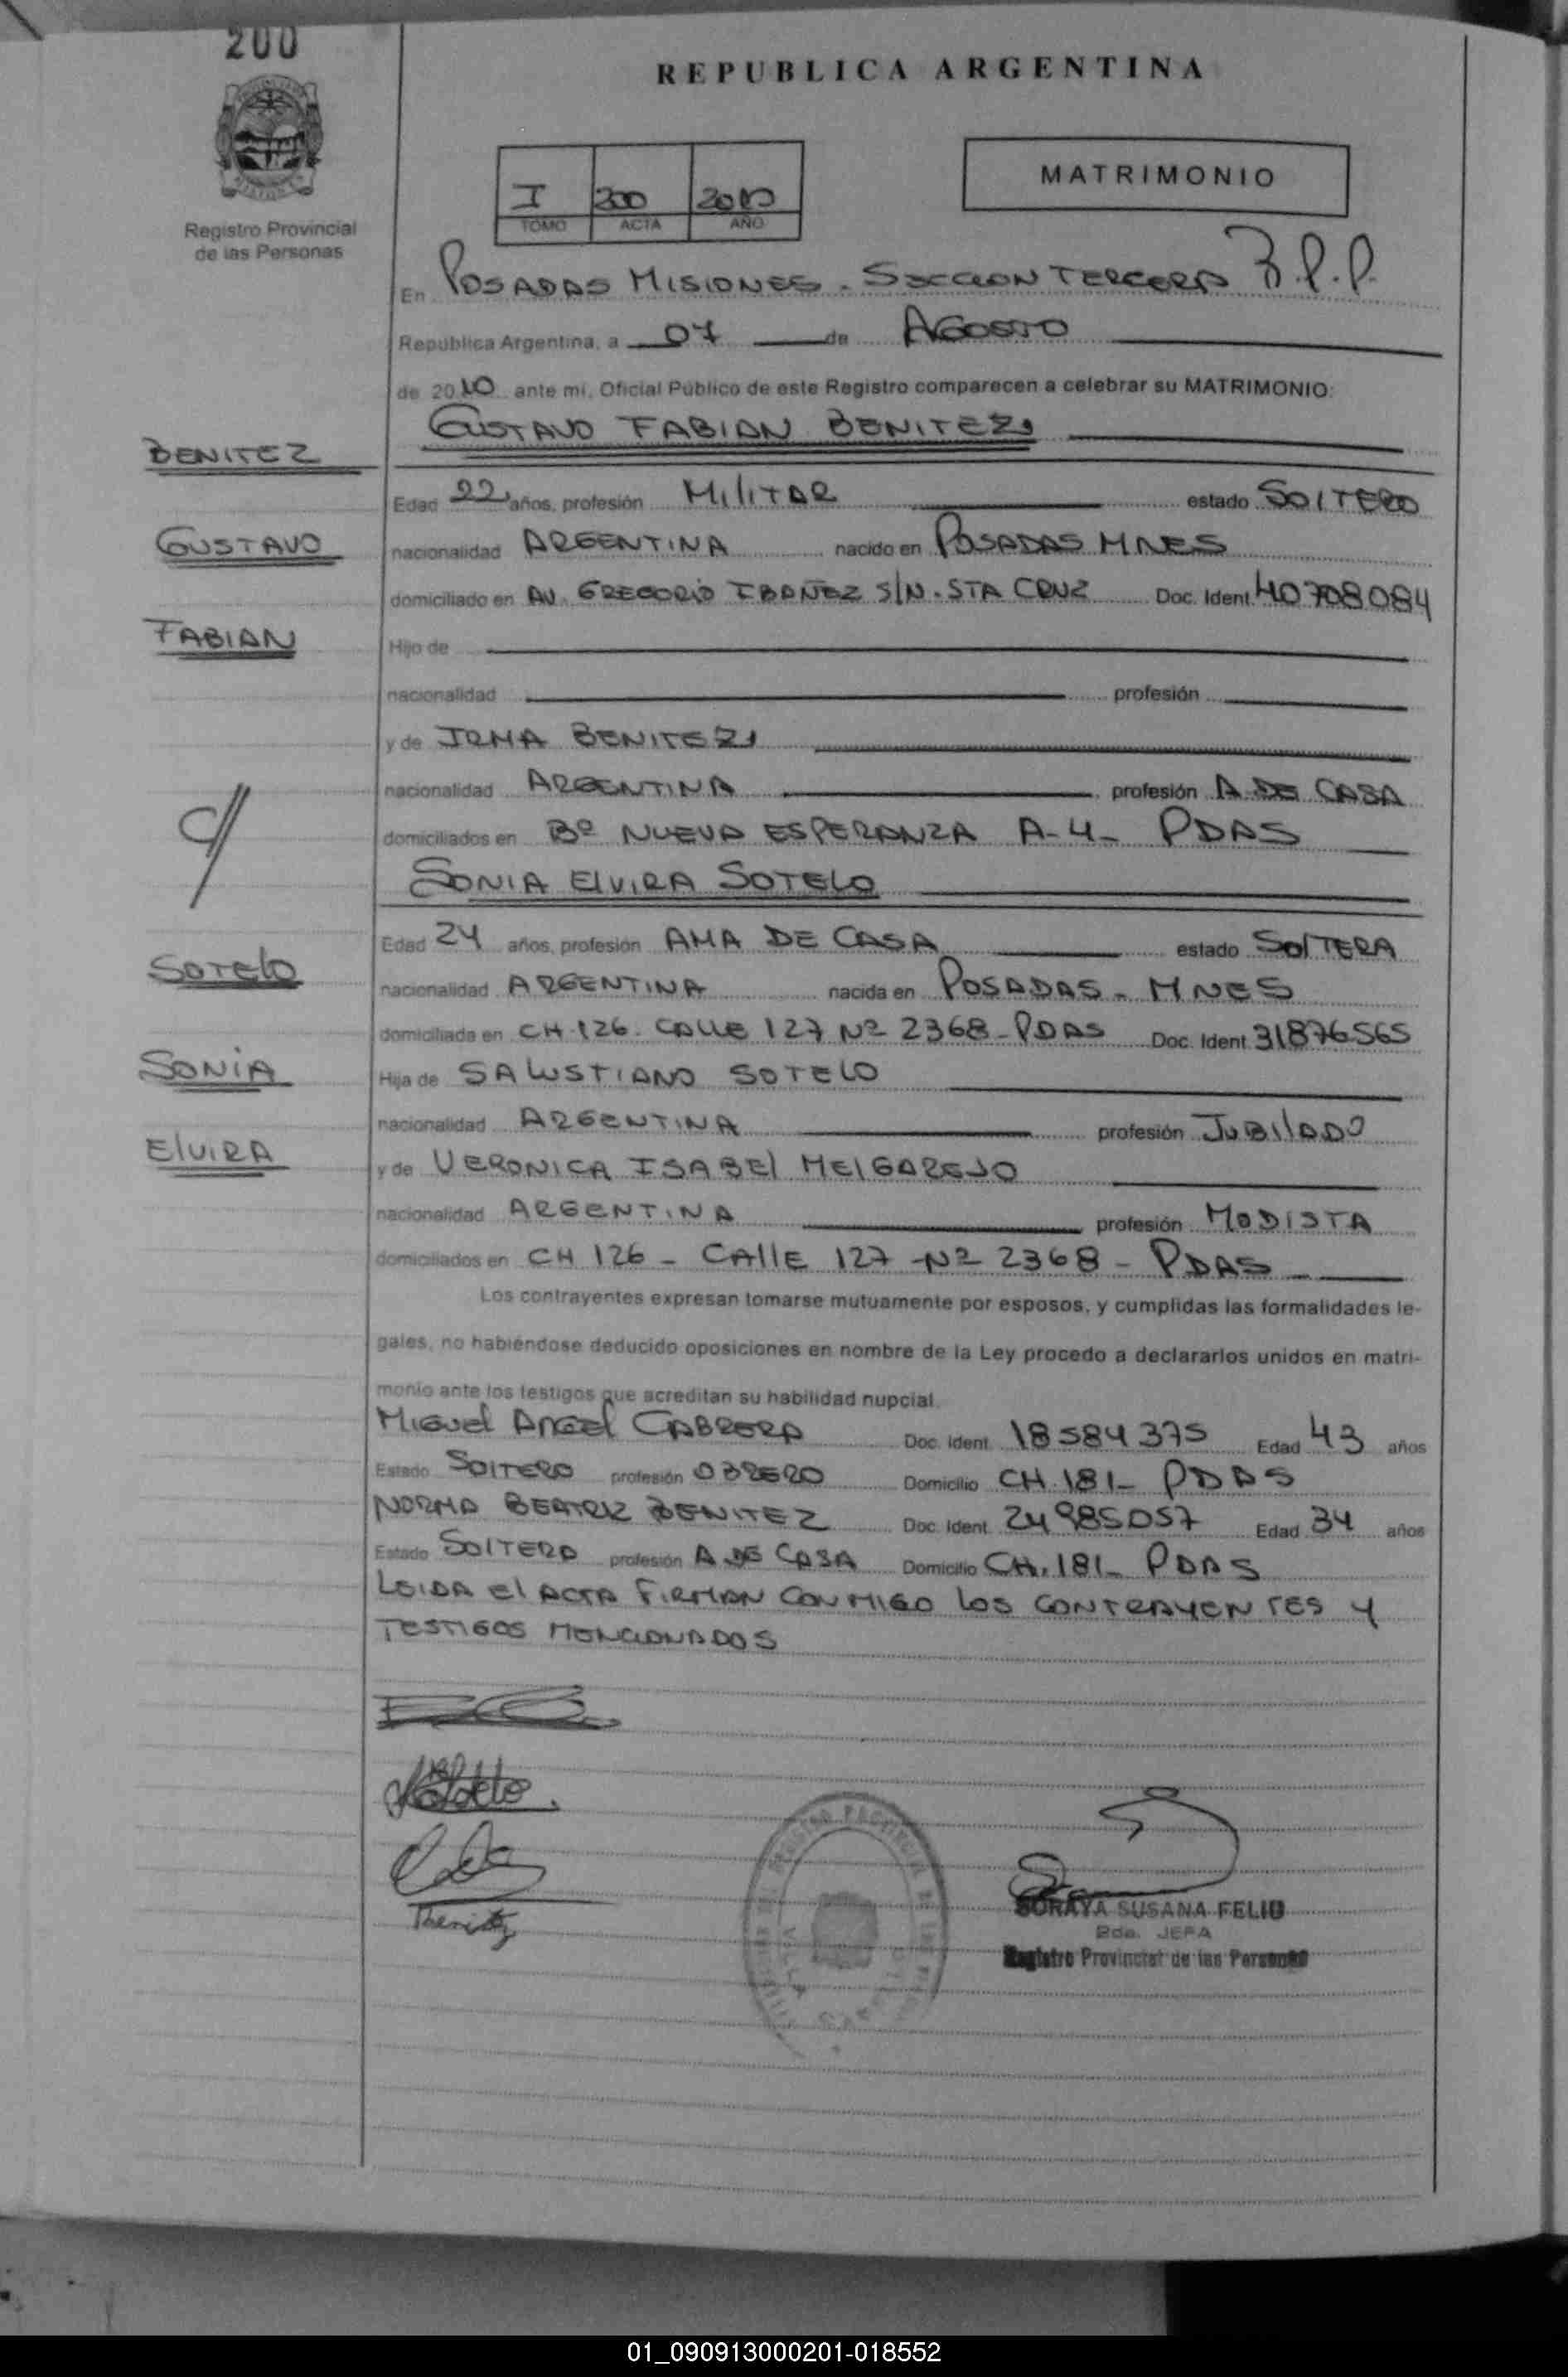 200
REPUBLICA ARGENTINA
Registro Provincial
de las Personas
I 200 2010
TOMO ACTA AÑO
MATRIMONIO
En POSADAS MISIONES. SECCION TERCERA R.P.P.
Republica Argentina, a 07 de AGOSTO
de 2010 ante mi, Oficial Público de este Registro comparecen a celebrar su MATRIMONIO:
GUSTAVO FABIAN BENITEZ
BENITEZ
Edad 22 años, profesión MILITAR estado SOLTERO
GUSTAVO
nacionalidad ARGENTINA nacido en POSADAS MNES
domiciliado en AV. GREGORIO IBAÑEZ S/N. STA CRUZ Doc. Ident. 40708084
FABIAN
Hijo de
nacionalidad profesión
y de IRMA BENITEZ
nacionalidad ARGENTINA profesión A DE CASA
C/
domiciliados en Bº NUEVA ESPERANZA A-4- PDAS
SONIA ELVIRA SOTELO
Edad 24 años, profesión AMA DE CASA estado SOLTERA
SOTELO
nacionalidad ARGENTINA nacida en POSADAS - MNES
domiciliada en CH.126. CALLE 127 Nº 2368-PDAS Doc. Ident. 31876565
SONIA
Hija de SALUSTIANO SOTELO
nacionalidad ARGENTINA profesión JUBILADO
ELVIRA
y de VERONICA ISABEL MELGAREJO
nacionalidad ARGENTINA profesión MODISTA
domiciliados en CH 126 - CALLE 127 -Nº 2368 - PDAS -
Los contrayentes expresan tomarse mutuamente por esposos, y cumplidas las formalidades le-
gales, no habiéndose deducido oposiciones en nombre de la Ley procedo a declararlos unidos en matri-
monio ante los testigos que acreditan su habilidad nupcial.
MIGUEL ANGEL CABRERA Doc. Ident. 18584375 Edad 43 años
Estado SOLTERO profesión OBRERO Domicilio CH.181- PDAS
NORMA BEATRIZ BENITEZ Doc. Ident. 24985057 Edad 34 años
Estado SOLTERA profesión A DE CASA Domicilio CH.181- PDAS
LEIDA EL ACTA FIRMAN CONMIGO LOS CONTRAYENTES Y
TESTIGOS MENCIONADOS
SORAYA SUSANA FELIU
JEFA
Registro Provincial de las Personas
01_090913000201-018552